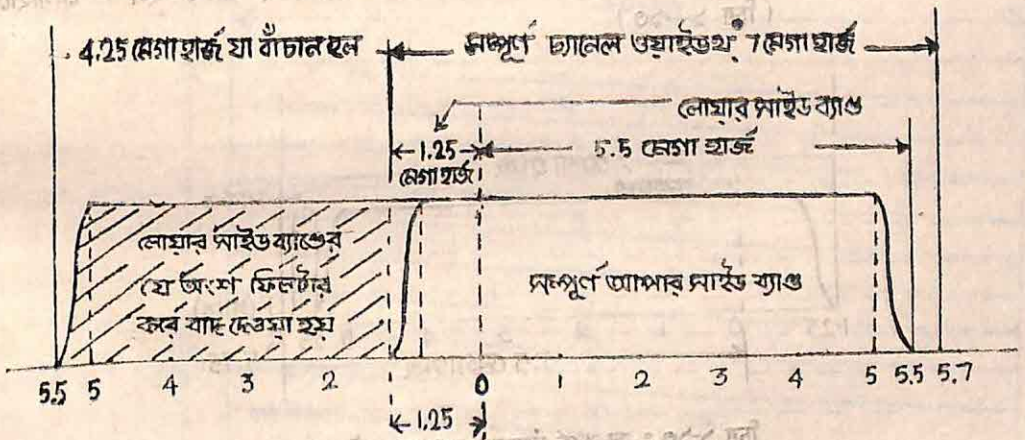 4.25 মেগা হার্জ যা বাঁচান হল
সম্পূর্ণ চ্যানেল ওয়াইডথ্ 7 মেগা হার্জ
লোয়ার সাইড ব্যাণ্ড
1.25
মেগা হার্জ
5.5 মেগা হার্জ
লোয়ার সাইড ব্যাণ্ডের
যে অংশ ফিলটার
করে বাদ দেওয়া হয়
সম্পূর্ণ আপার সাইড ব্যাণ্ড
5.5 5 4 3 2 0 1 2 3 4 5 5.5 5.7
1.25